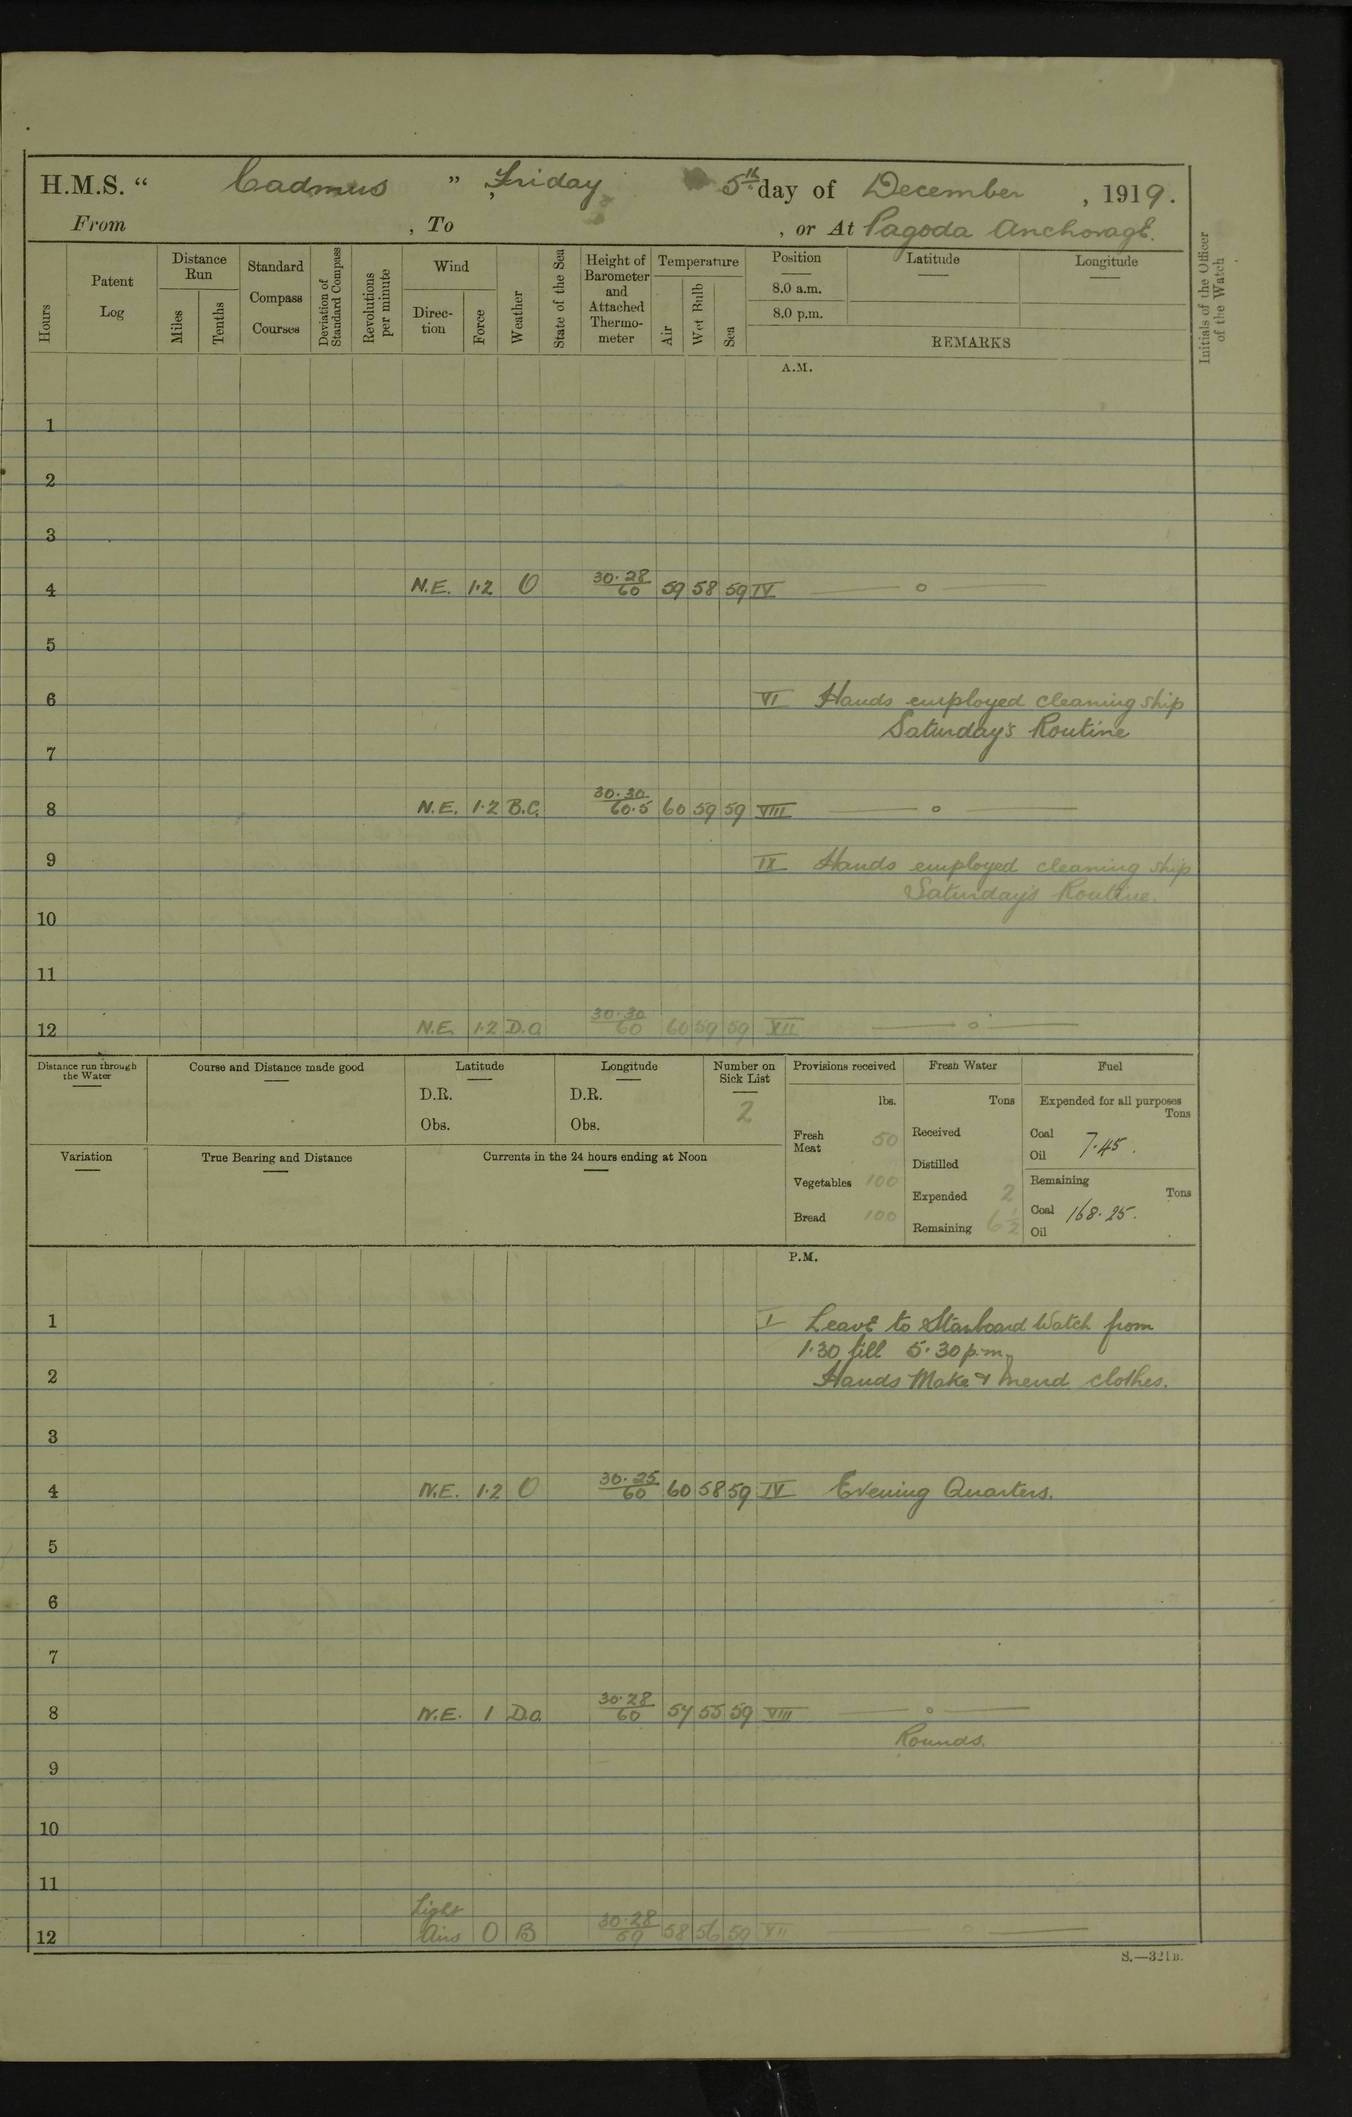 H.M.S. “ Cadmus ” , Friday 5th day of December , 1919.
From , To , or At Pagoda Anchorage.
Hours
Patent Log
Distance Run
Miles
Tenths
Standard Compass Courses
Deviation of Standard Compass
Revolutions per minute
Wind
Direction
Force
Weather
State of the Sea
Height of Barometer and Attached Thermometer
Temperature
Air
Wet Bulb
Sea
Position
8.0 a.m.
8.0 p.m.
Latitude
Longitude
REMARKS
Initials of the Officer of the Watch
A.M.
1
2
3
4 N.E. 1·2 O 30·28/60 59 58 59 IV — o —
5
6 VI Hands employed cleaning ship
Saturday's Routine
7
8 N.E. 1·2 B.C. 30·30/60·5 60 59 59 VIII — o —
9 IX Hands employed cleaning ship
Saturday's Routine.
10
11
12 N.E. 1·2 D.O. 30·30/60 60 59 59 XII — o —
Distance run through the Water
Course and Distance made good
Latitude
D.R.
Obs.
Longitude
D.R.
Obs.
Number on Sick List
2
Provisions received
lbs.
Fresh Meat 50
Vegetables 100
Bread 100
Fresh Water
Tons
Received
Distilled
Expended 2
Remaining 6½
Fuel
Expended for all purposes
Tons
Coal 7·45.
Oil
Remaining
Tons
Coal 168·25.
Oil
Variation
True Bearing and Distance
Currents in the 24 hours ending at Noon
P.M.
1 I Leave to Starboard Watch from
1·30 till 5·30 p.m.
2 Hands Make & mend clothes.
3
4 N.E. 1·2 O 30·25/60 60 58 59 IV Evening Quarters.
5
6
7
8 N.E. 1 D.O. 30·28/60 57 55 59 VIII — o —
Rounds.
9
10
11
12 Light Airs O B 30·28/59 58 56 59 XII — o —
S.—321B.